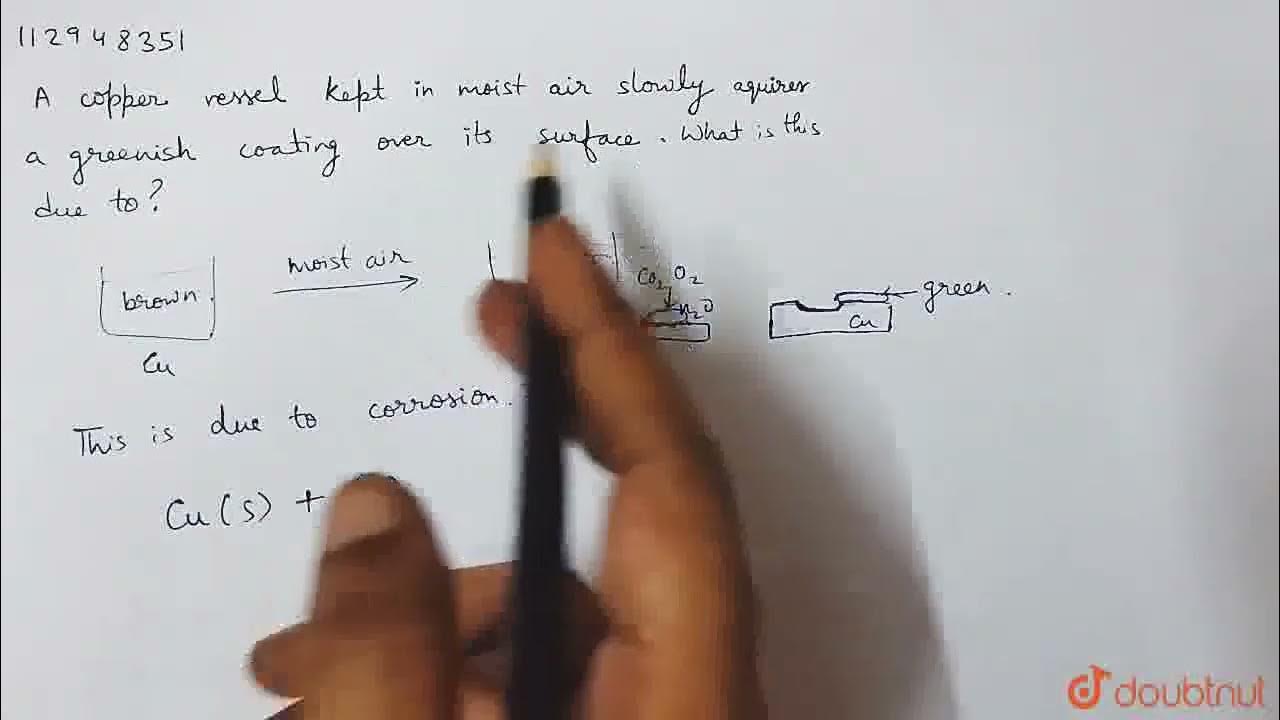 112948351
A copper vessel kept in moist air slowly aquires
a greenish coating over its surface. What is this
due to?
moist air
brown
CO2 O2
H2O
green.
Cu
Cu
This is due to corrosion.
Cu(s) +
doubtnut